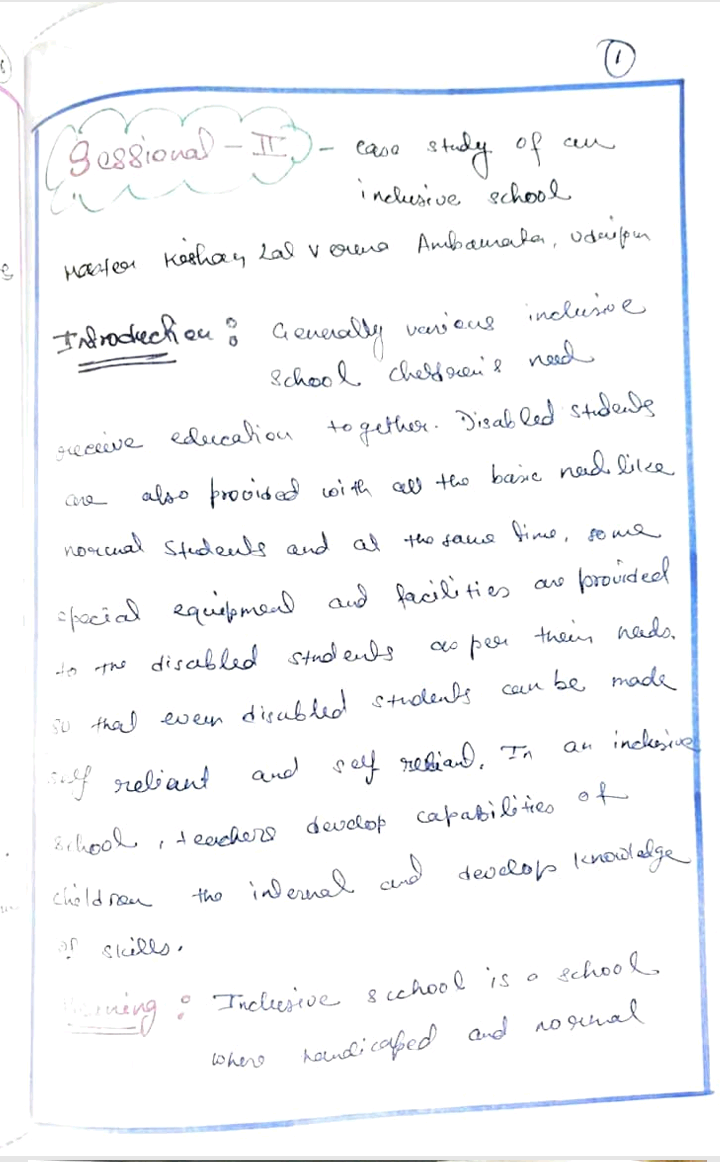 1
Sessional - II - case study of an
inclusive school
Master Keshav Lal Verma Ambamata, Udaipur
Introduction : Generally various inclusive
school children's need
receive education together. Disabled students
are also provided with all the basic need like
normal students and at the same time, some
special equipment and facilities are provided
to the disabled students as per their needs.
so that even disabled students can be made
self reliant and self reliant. In an inclusive
school, teachers develop capabilities of
children the internal and develop knowledge
of skills.
: Inclusive scchool is a school
where handicaped and normal